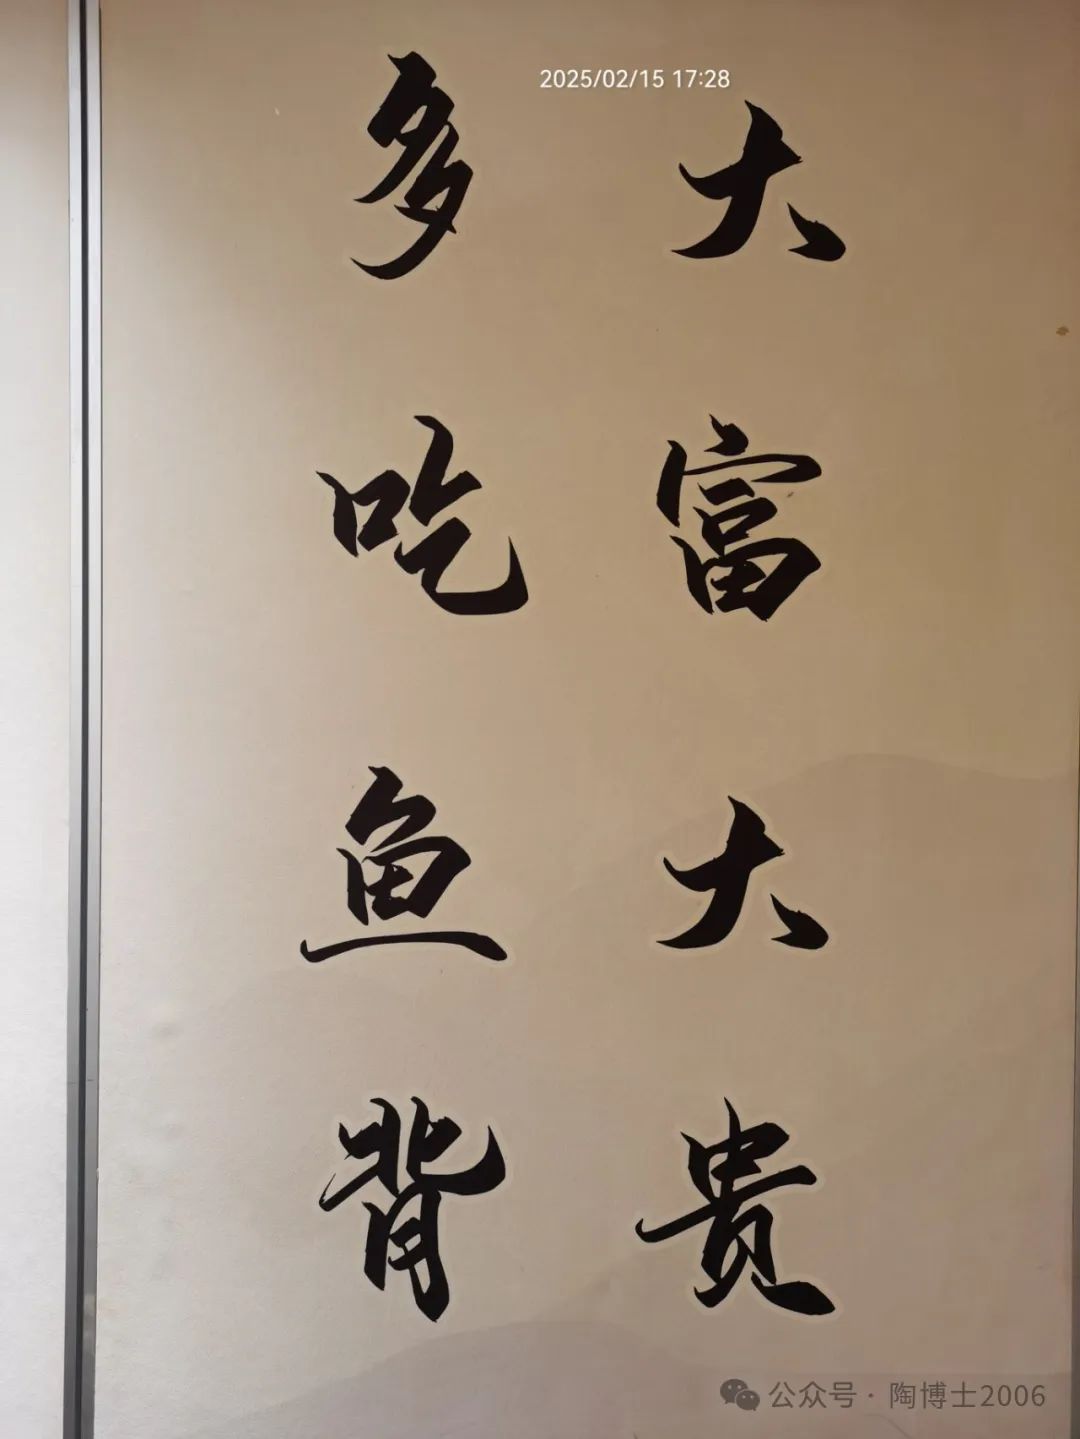 2025/02/15 17:28
大富大贵
多吃鱼背
公众号·陶博士2006